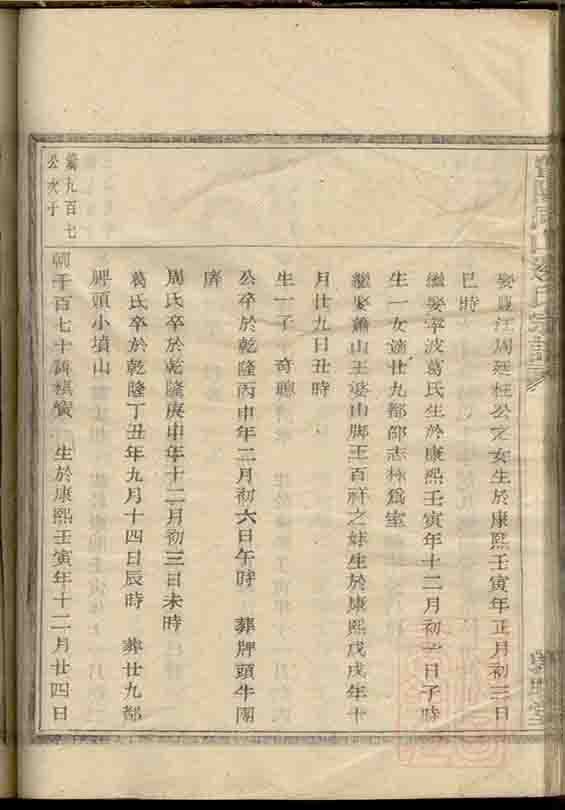 娶豐江周廷柱公之女生於康熙壬寅年正月初三日
巳時
繼娶寧波葛氏生於康熙壬寅年十二月初一日子時
生一女適廿九都邵志林爲室
繼娶蕭山王婆山脚王百祥之妹生於康熙戊戌年十
月廿九日丑時
生一子 奇聰
公卒於乾隆丙申年二月初六日午時 葬牌頭牛團
周氏卒於乾隆庚申年十二月初三日未時
葛氏卒於乾隆丁丑年九月十四日辰時 葬廿九都
牌頭小墳山
萬九百七
公次子
朝千百七十 諱祺 生於康熙壬寅年十二月廿四日